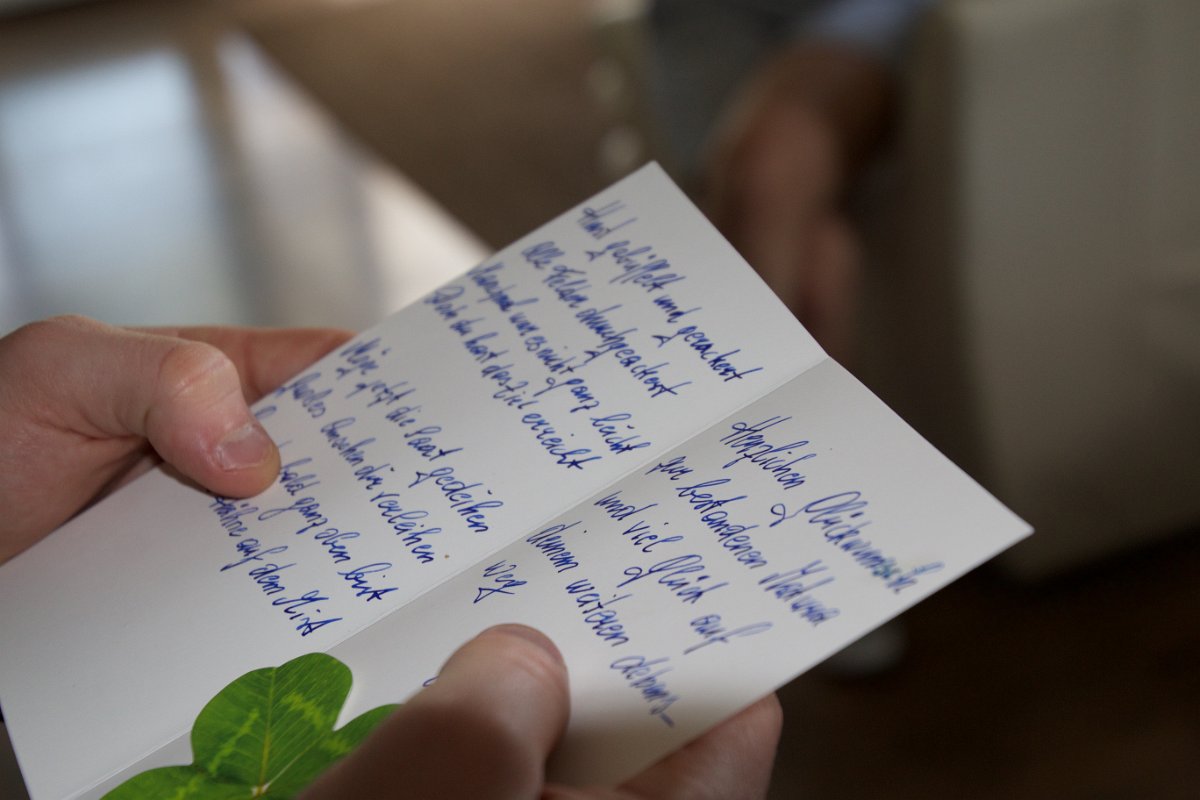 Hart gebüffelt und gerackert
alle Felder durchgeackert
Manchmal war es nicht ganz leicht
Doch du hast das Ziel erreicht
Möge jetzt die Saat gedeihen
Großes Ansehen dir verleihen
bald ganz oben bist
Hähne auf dem Mist
Herzlichen Glückwunsch
zur bestandenen Matura
und viel Glück auf
deinem weiteren Lebens-
weg